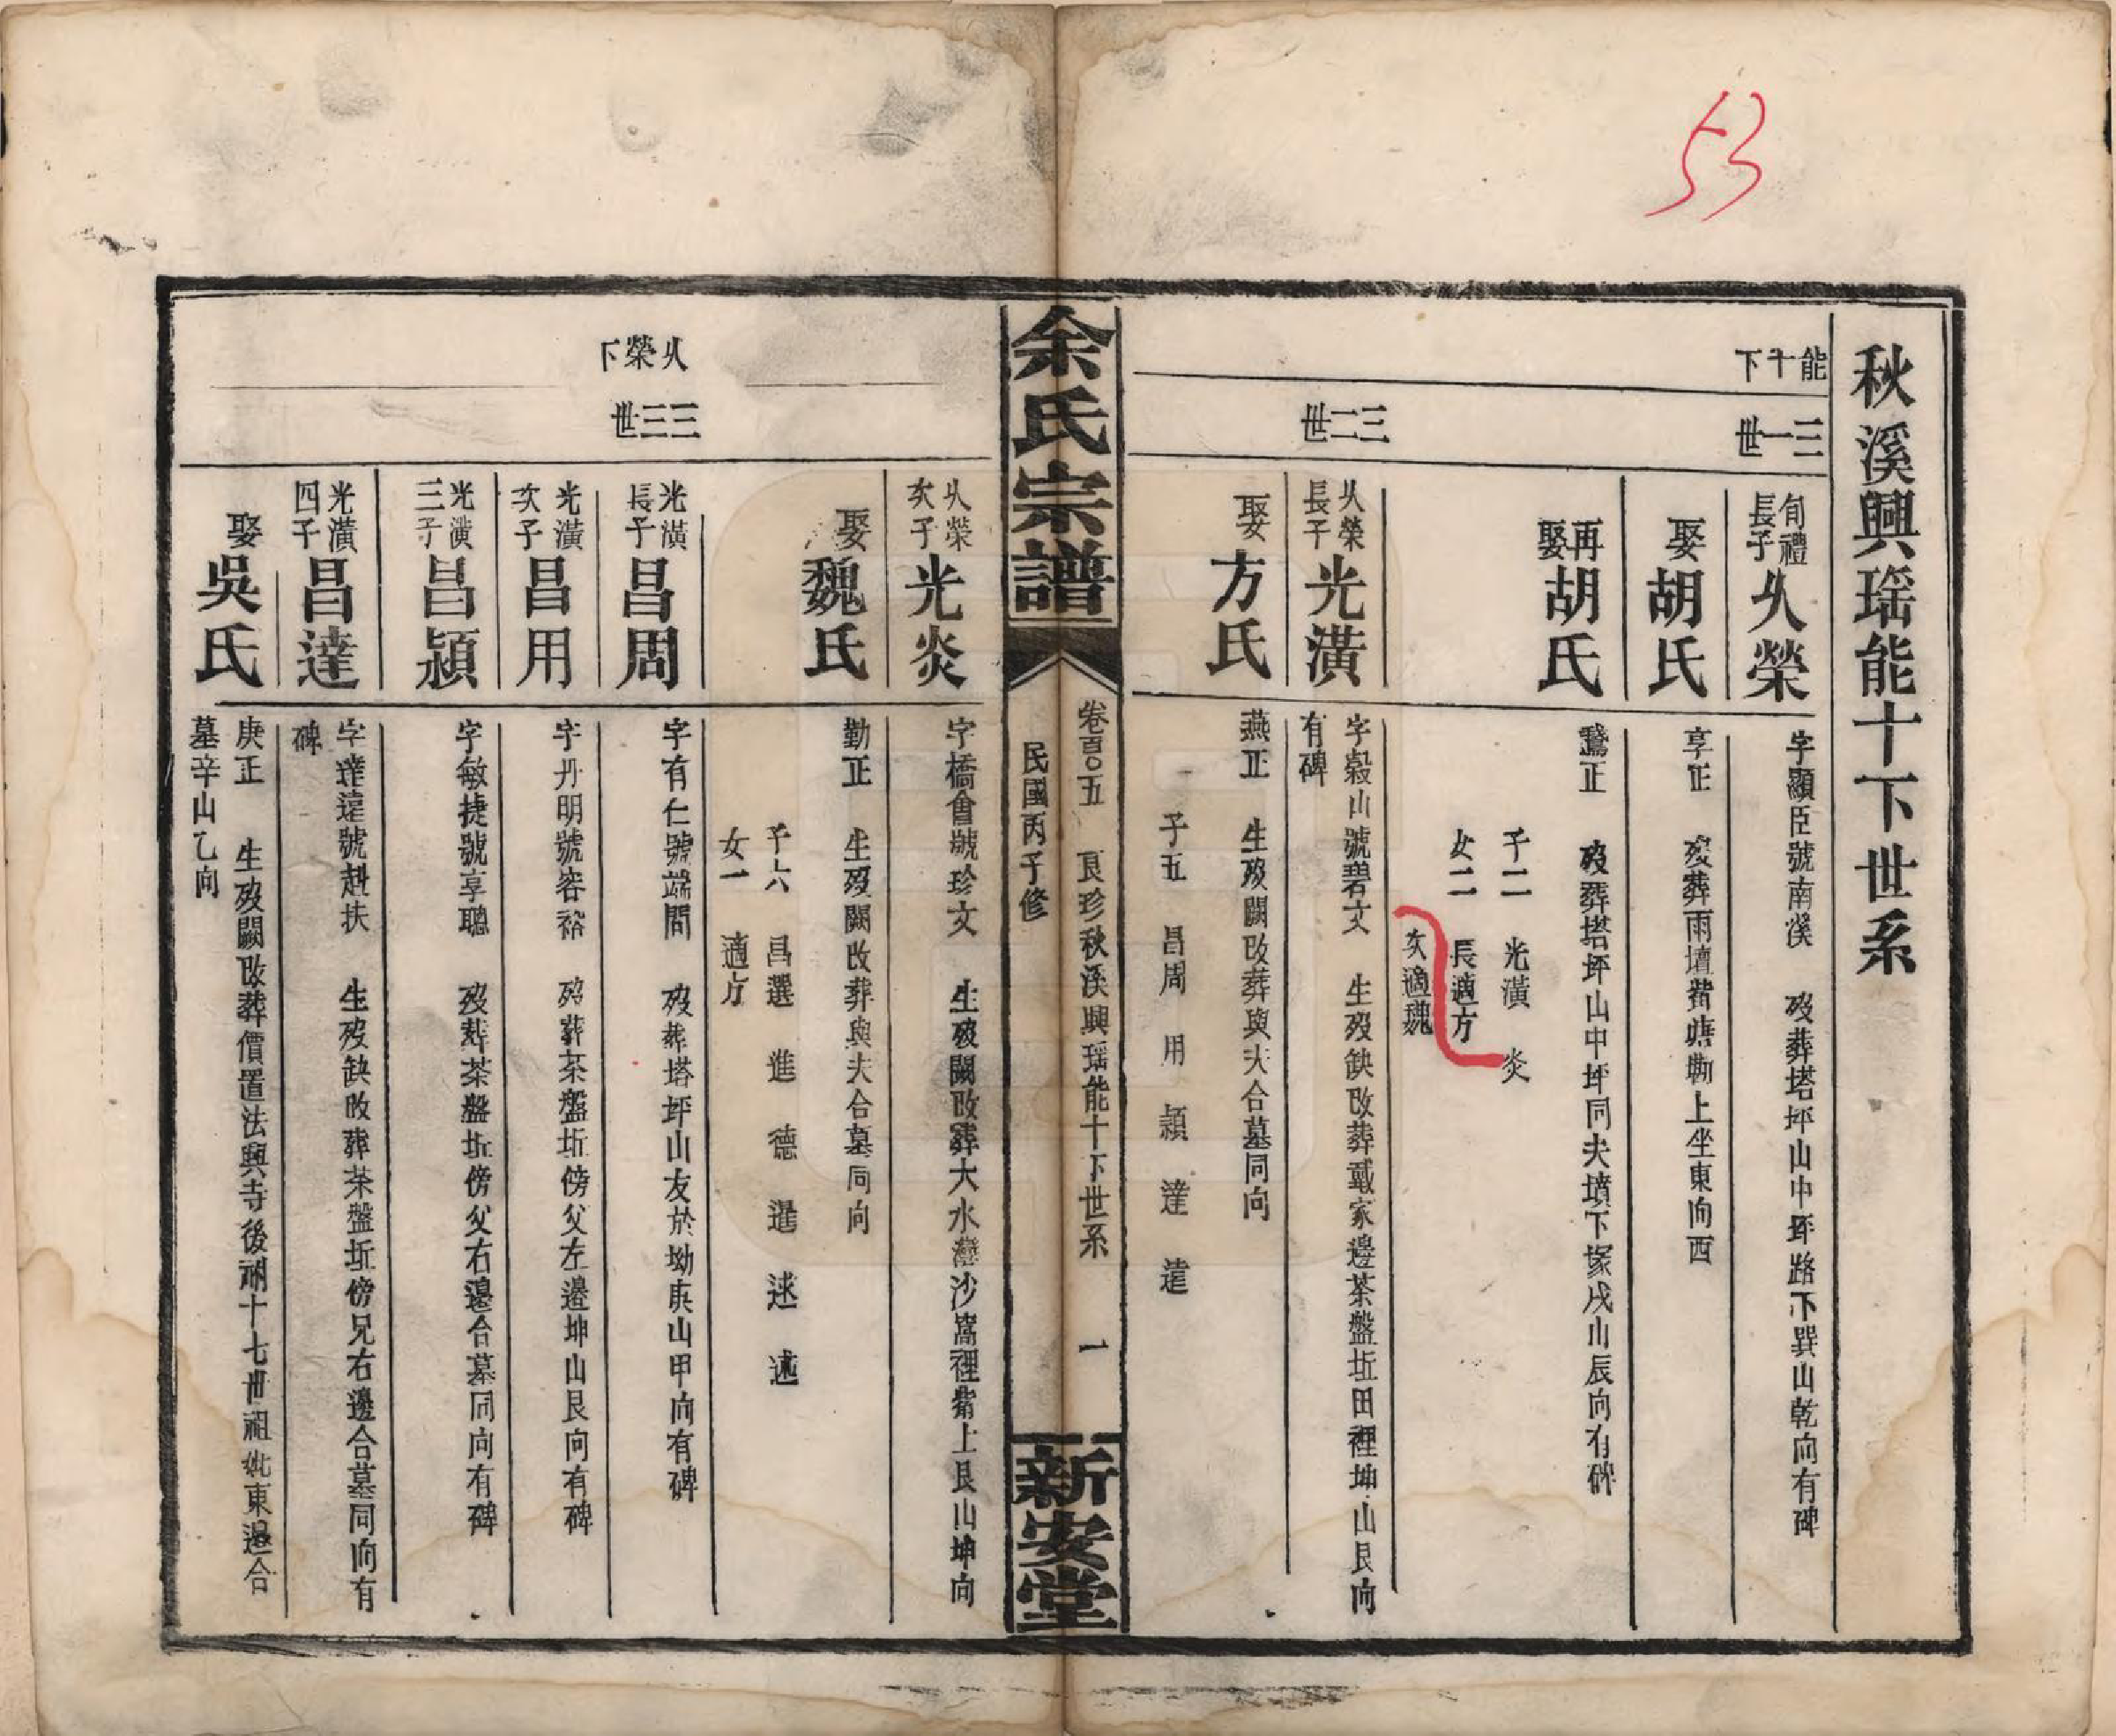 53
秋溪興瑶能十下世系
能十下
三一世
旬禮長子
久榮
字顯臣號南溪 歿葬塔坪山中坪路下巽山乾向有碑
娶
胡氏
享正 歿葬雨壇背塘勘上坐東向西
再娶
胡氏
鵞正 歿葬塔坪山中坪同夫墳下塚戌山辰向有碑
子二 光潢 炎
女二 長適方
次適魏
三二世
久榮長子
光潢
字榖山號碧文 生歿缺改葬戴家邊茶盤坵田裡坤山艮向
有碑
娶
方氏
燕正 生歿闕改葬與夫合墓同向
子五 昌周 用 頴 達 遠
余氏宗譜
卷百〇五 良珍秋溪興瑶能十下世系 一
民國丙子修
新安堂
久榮下
三三世
久榮次子
光炎
字橋會號珍文 生歿闕改葬大水灣沙窩裡背上艮山坤向
娶
魏氏
勤正 生歿闕改葬與夫合墓同向
子六 昌選 進 德 暹 逑 述
女一 適方
光潢長子
昌周
字有仁號端問 歿葬塔坪山友於坳庚山甲向有碑
光潢次子
昌用
字升明號容裕 歿葬茶盤坵傍父左邉坤山艮向有碑
光潢三子
昌頴
字敏捷號享聰 歿葬茶盤坵傍父右邉合墓同向有碑
光潢四子
昌達
字達遠號赳扶 生歿缺改葬茶盤坵傍兄右邊合墓同向有
碑
娶
吳氏
庚正 生歿闕改葬價置法興寺後祔十七世祖妣東邉合
墓辛山乙向